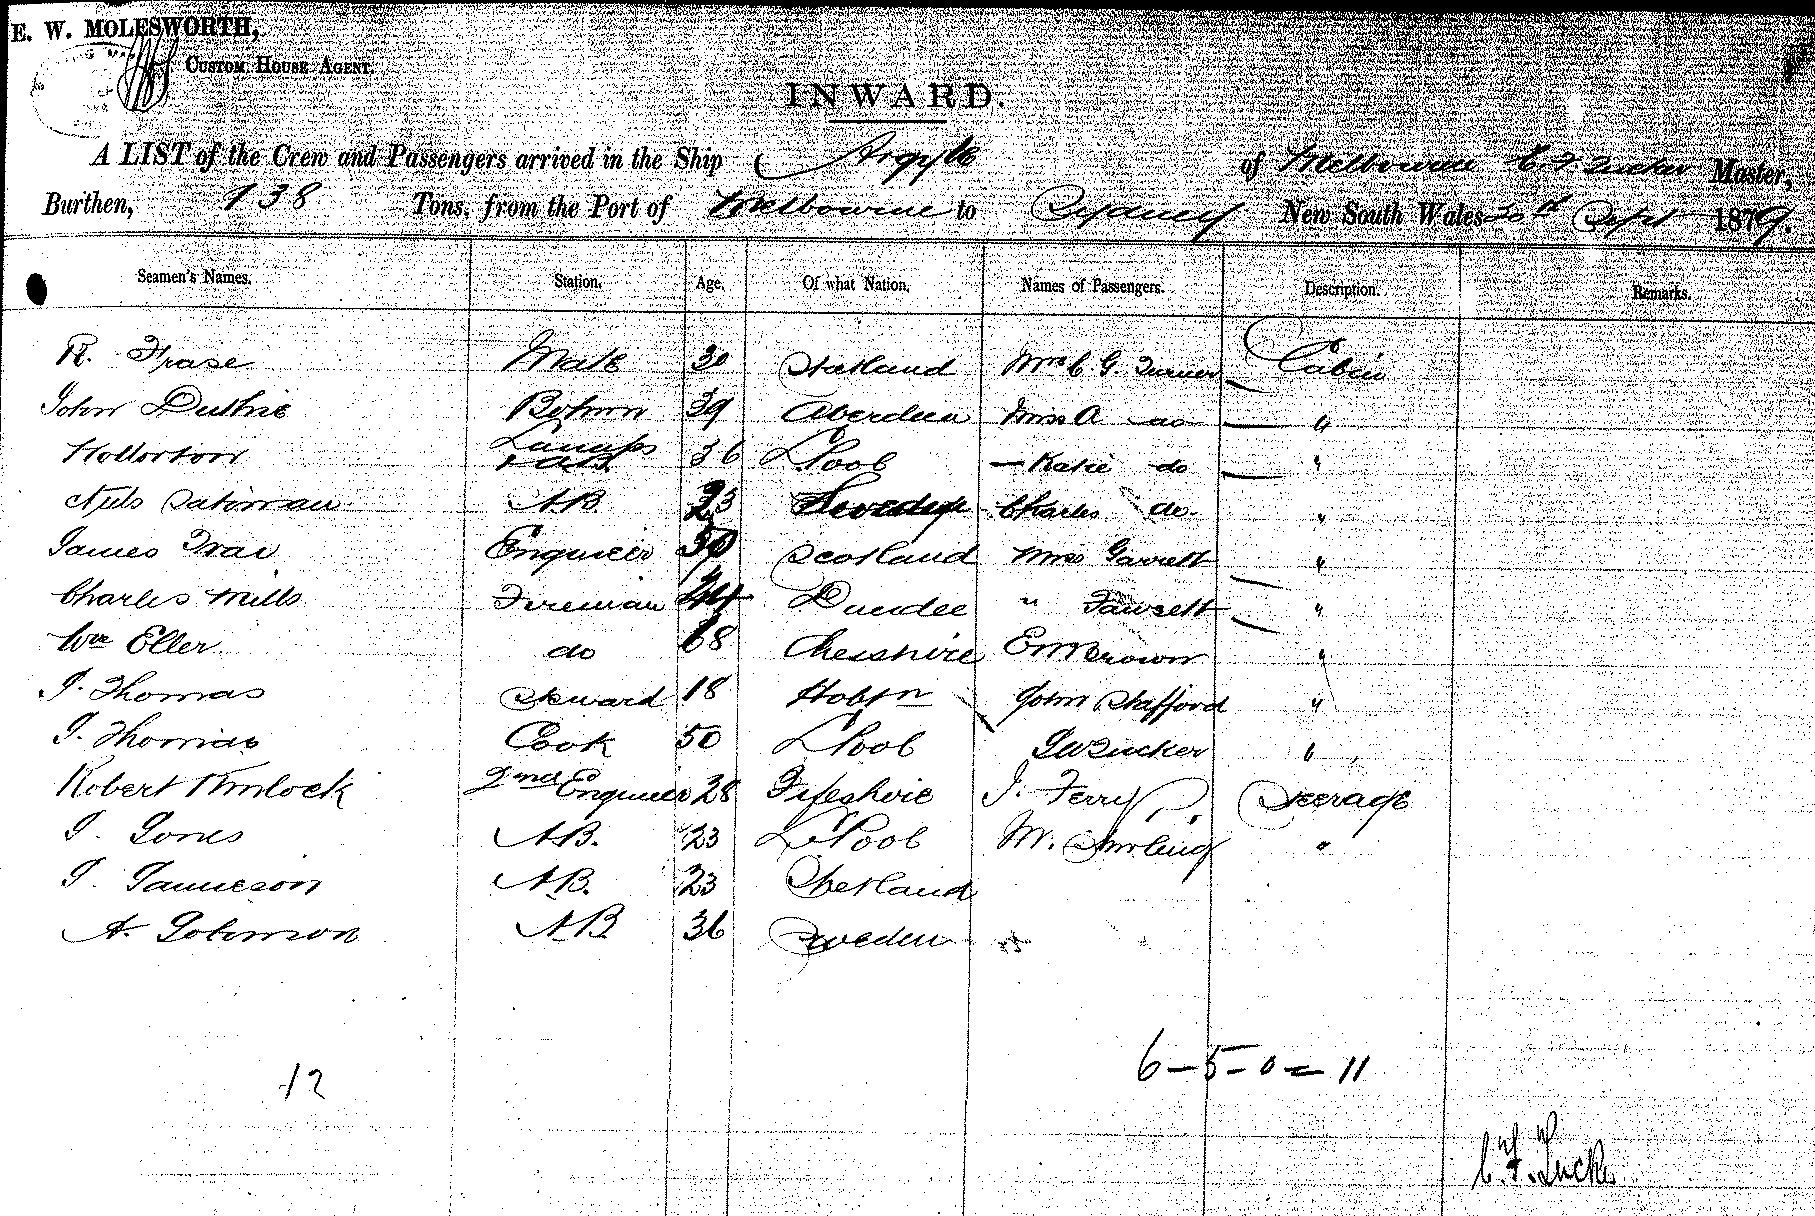 E. W. MOLESWORTH,
CUSTOM HOUSE AGENT.
INWARD.
A LIST of the Crew and Passengers arrived in the Ship Argyle of Melbourne C. F. Tucker Master,
Burthen, 138 Tons, from the Port of Melbourne to Sydney New South Wales Sept 1879.
Seamen's Names. Station. Age. Of what Nation. Names of Passengers. Description. Remarks.
R. Frase Mate 30 Mrs C G. Turner Cabin
John Duthie Botswn 39 Aberdeen Miss A do "
Hollorton Lamps 36 LPool — Katie do "
AB 23 Charles do. "
James Engineer Scotland Mrs Garrett "
Charles Mills Fireman 44 Dundee " Fawsett "
Wm Eller do 68 Cheishire E M Brown "
J. Thomas Steward 18 Hobtn John Stafford "
J. Thomas Cook 50 LPool Tucker "
Robert Kinlock 2nd Engineer 28 Fifeshire J. Ferry Steerage
J. Jones A.B. 23 LPool M. Stirling "
J. Jamieson A.B. 23 Shetland
A. Johnson A.B. 36 Sweden
12
6-5-0=11
C. F. Tucker